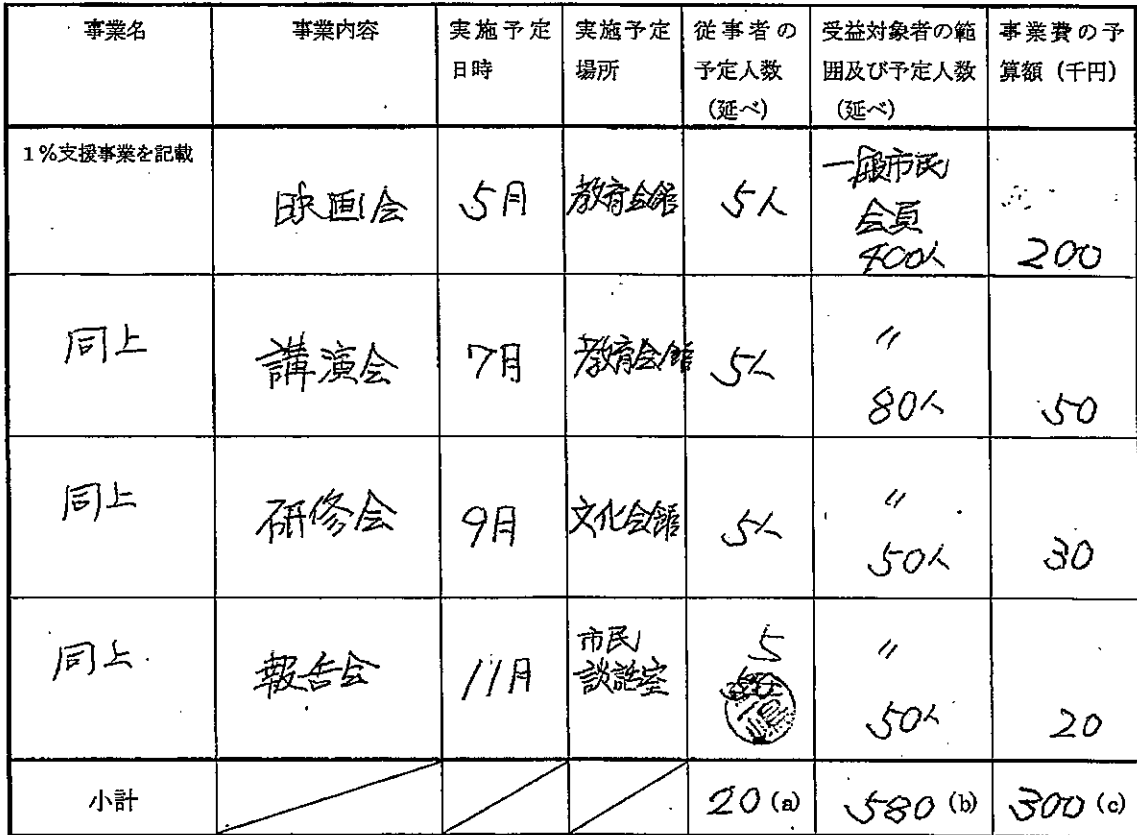 事業名
事業内容
実施予定
日時
実施予定
場所
従事者の
予定人数
(延べ)
受益対象者の範
囲及び予定人数
(延べ)
事業費の予
算額(千円)
1%支援事業を記載
映画会
5月
教育会館
5人
一般市民
会員
400人
200
同上
講演会
7月
教育会館
5人
〃
80人
50
同上
研修会
9月
文化会館
5人
〃
50人
30
同上.
報告会
11月
市民
談話室
5
〃
50人
20
小計
20 (a)
580 (b)
300 (c)